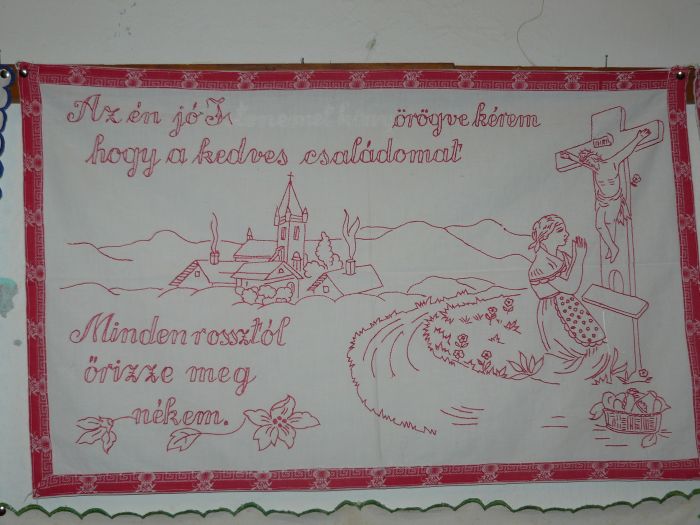 Az én jó Istenemet könyörögve kérem
hogy a kedves családomat
Minden rossztól
őrizze meg
nékem.
INRI